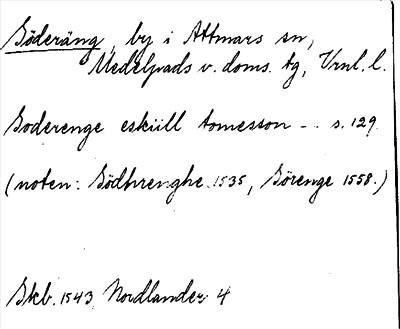 Söderäng, by i Attmars sn,
Medelpads v. doms. tg, Vrnl. l.
Soderenge eskiill tomesson - . s. 129.
(noten: Södhrenghe 1535, Sörenge 1558.)
Skb. 1543, Nordlander 4